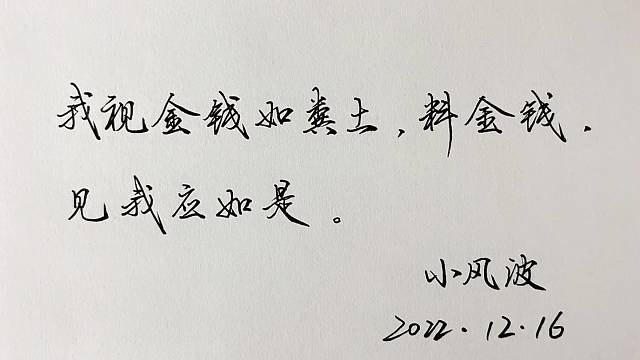 我视金钱如粪土，料金钱，
见我应如是。
小风波
2022.12.16